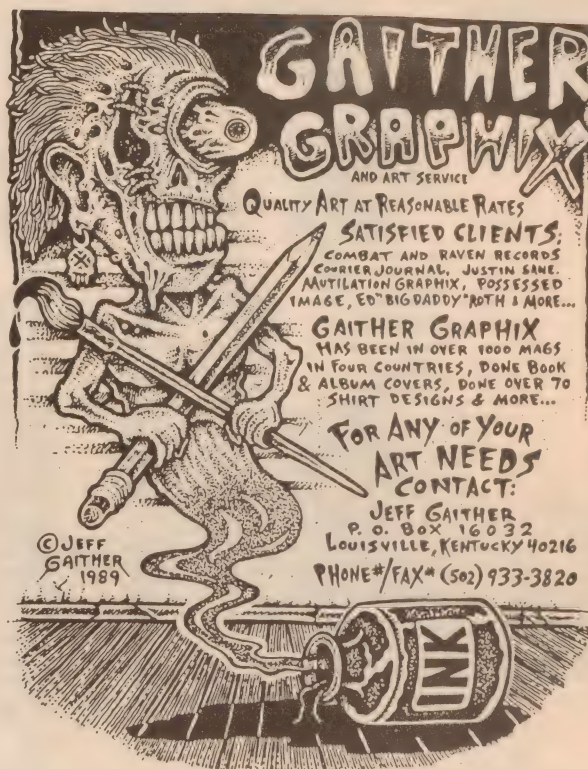 GAITHER
GRAPHIX
AND ART SERVICE
QUALITY ART AT REASONABLE RATES
SATISFIED CLIENTS:
COMBAT AND RAVEN RECORDS
COURIER JOURNAL, JUSTIN SANE.
MUTILATION GRAPHIX, POSSESSED
IMAGE, ED "BIG DADDY" ROTH & MORE...
GAITHER GRAPHIX
HAS BEEN IN OVER 1000 MAGS
IN FOUR COUNTRIES, DONE BOOK
& ALBUM COVERS, DONE OVER 70
SHIRT DESIGNS & MORE...
FOR ANY OF YOUR
ART NEEDS
CONTACT:
JEFF GAITHER
P. O. BOX 16032
LOUISVILLE, KENTUCKY 40216
PHONE#/FAX# (502) 933-3820
© JEFF
GAITHER
1989
INK